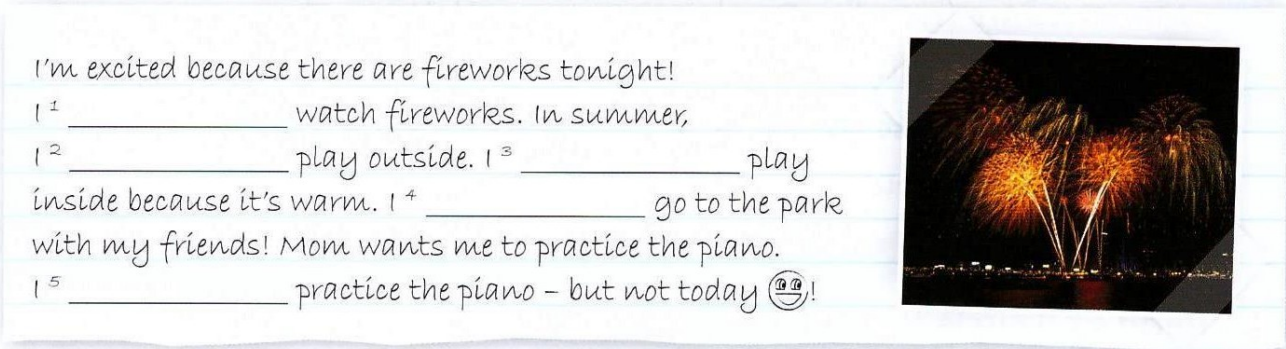 I'm excited because there are fireworks tonight!
I 1 ____________ watch fireworks. In summer,
I 2 ____________ play outside. I 3 ____________ play
inside because it's warm. I 4 ____________ go to the park
with my friends! Mom wants me to practice the piano.
I 5 ____________ practice the piano – but not today !